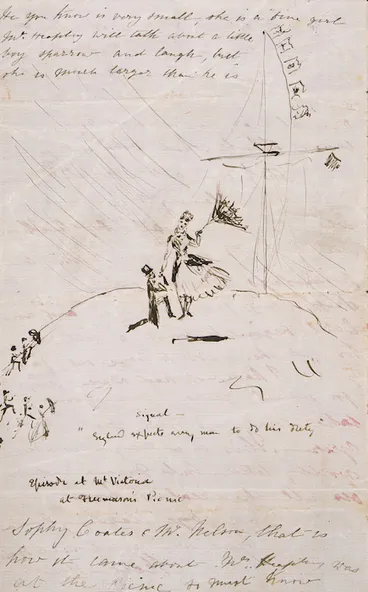 He you know is very small, she is a fine girl
Mr. Heaphy will talk about a little
boy sparrow and laugh, but
she is much larger than he is
Signal —
"England expects every man to do his duty"
Episode at Mt Victoria
at Freemason's Picnic
Sophy Coates & Mr. Nelson, that is
how it came about Mrs Heaphy was
at the Picnic so must know